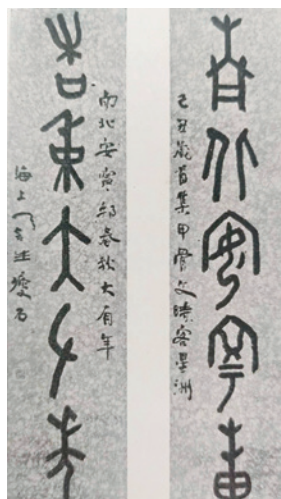 南北安寧邦
己丑歲首集甲骨文時客星洲
春秋大有年
南北安寧邦春秋大有年
海上